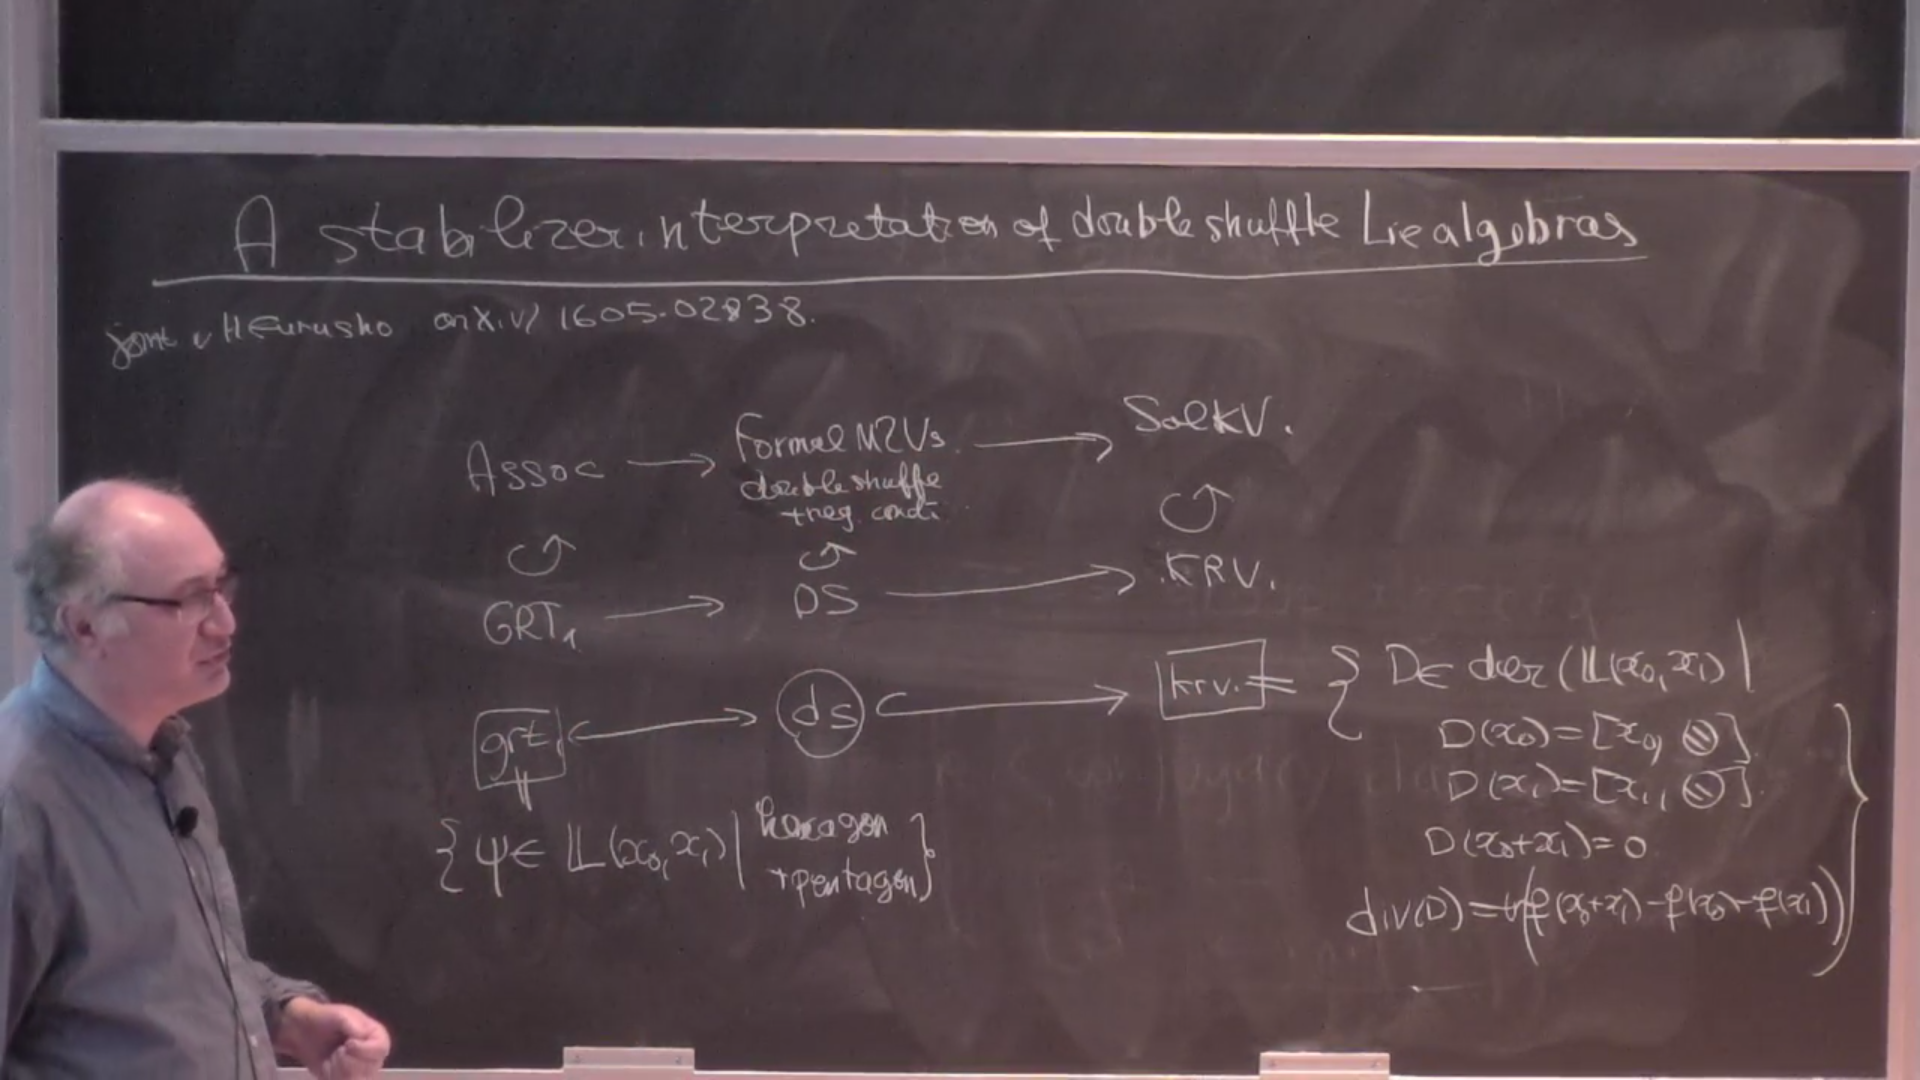 A stabilizer interpretation of double shuffle Lie algebras
joint w H Furusho arXiv 1605.02838.
Assoc → Formal MZVs → Sol KV.
double shuffle
+ reg. cond.
↺ ↺ ↺
GRT₁ → DS → KRV.
grt₁ ↪ ds ↪ krv. = { D ∈ der (𝕃(x₀, x₁) |
D(x₀) = [x₀, ⊘]
D(x₁) = [x₁, ⊘]
D(x₀+x₁) = 0
div(D) = tr(f(x₀+x₁) - f(x₀) - f(x₁)) }
||
{ ψ ∈ 𝕃(x₀, x₁) | hexagon
+ pentagon }